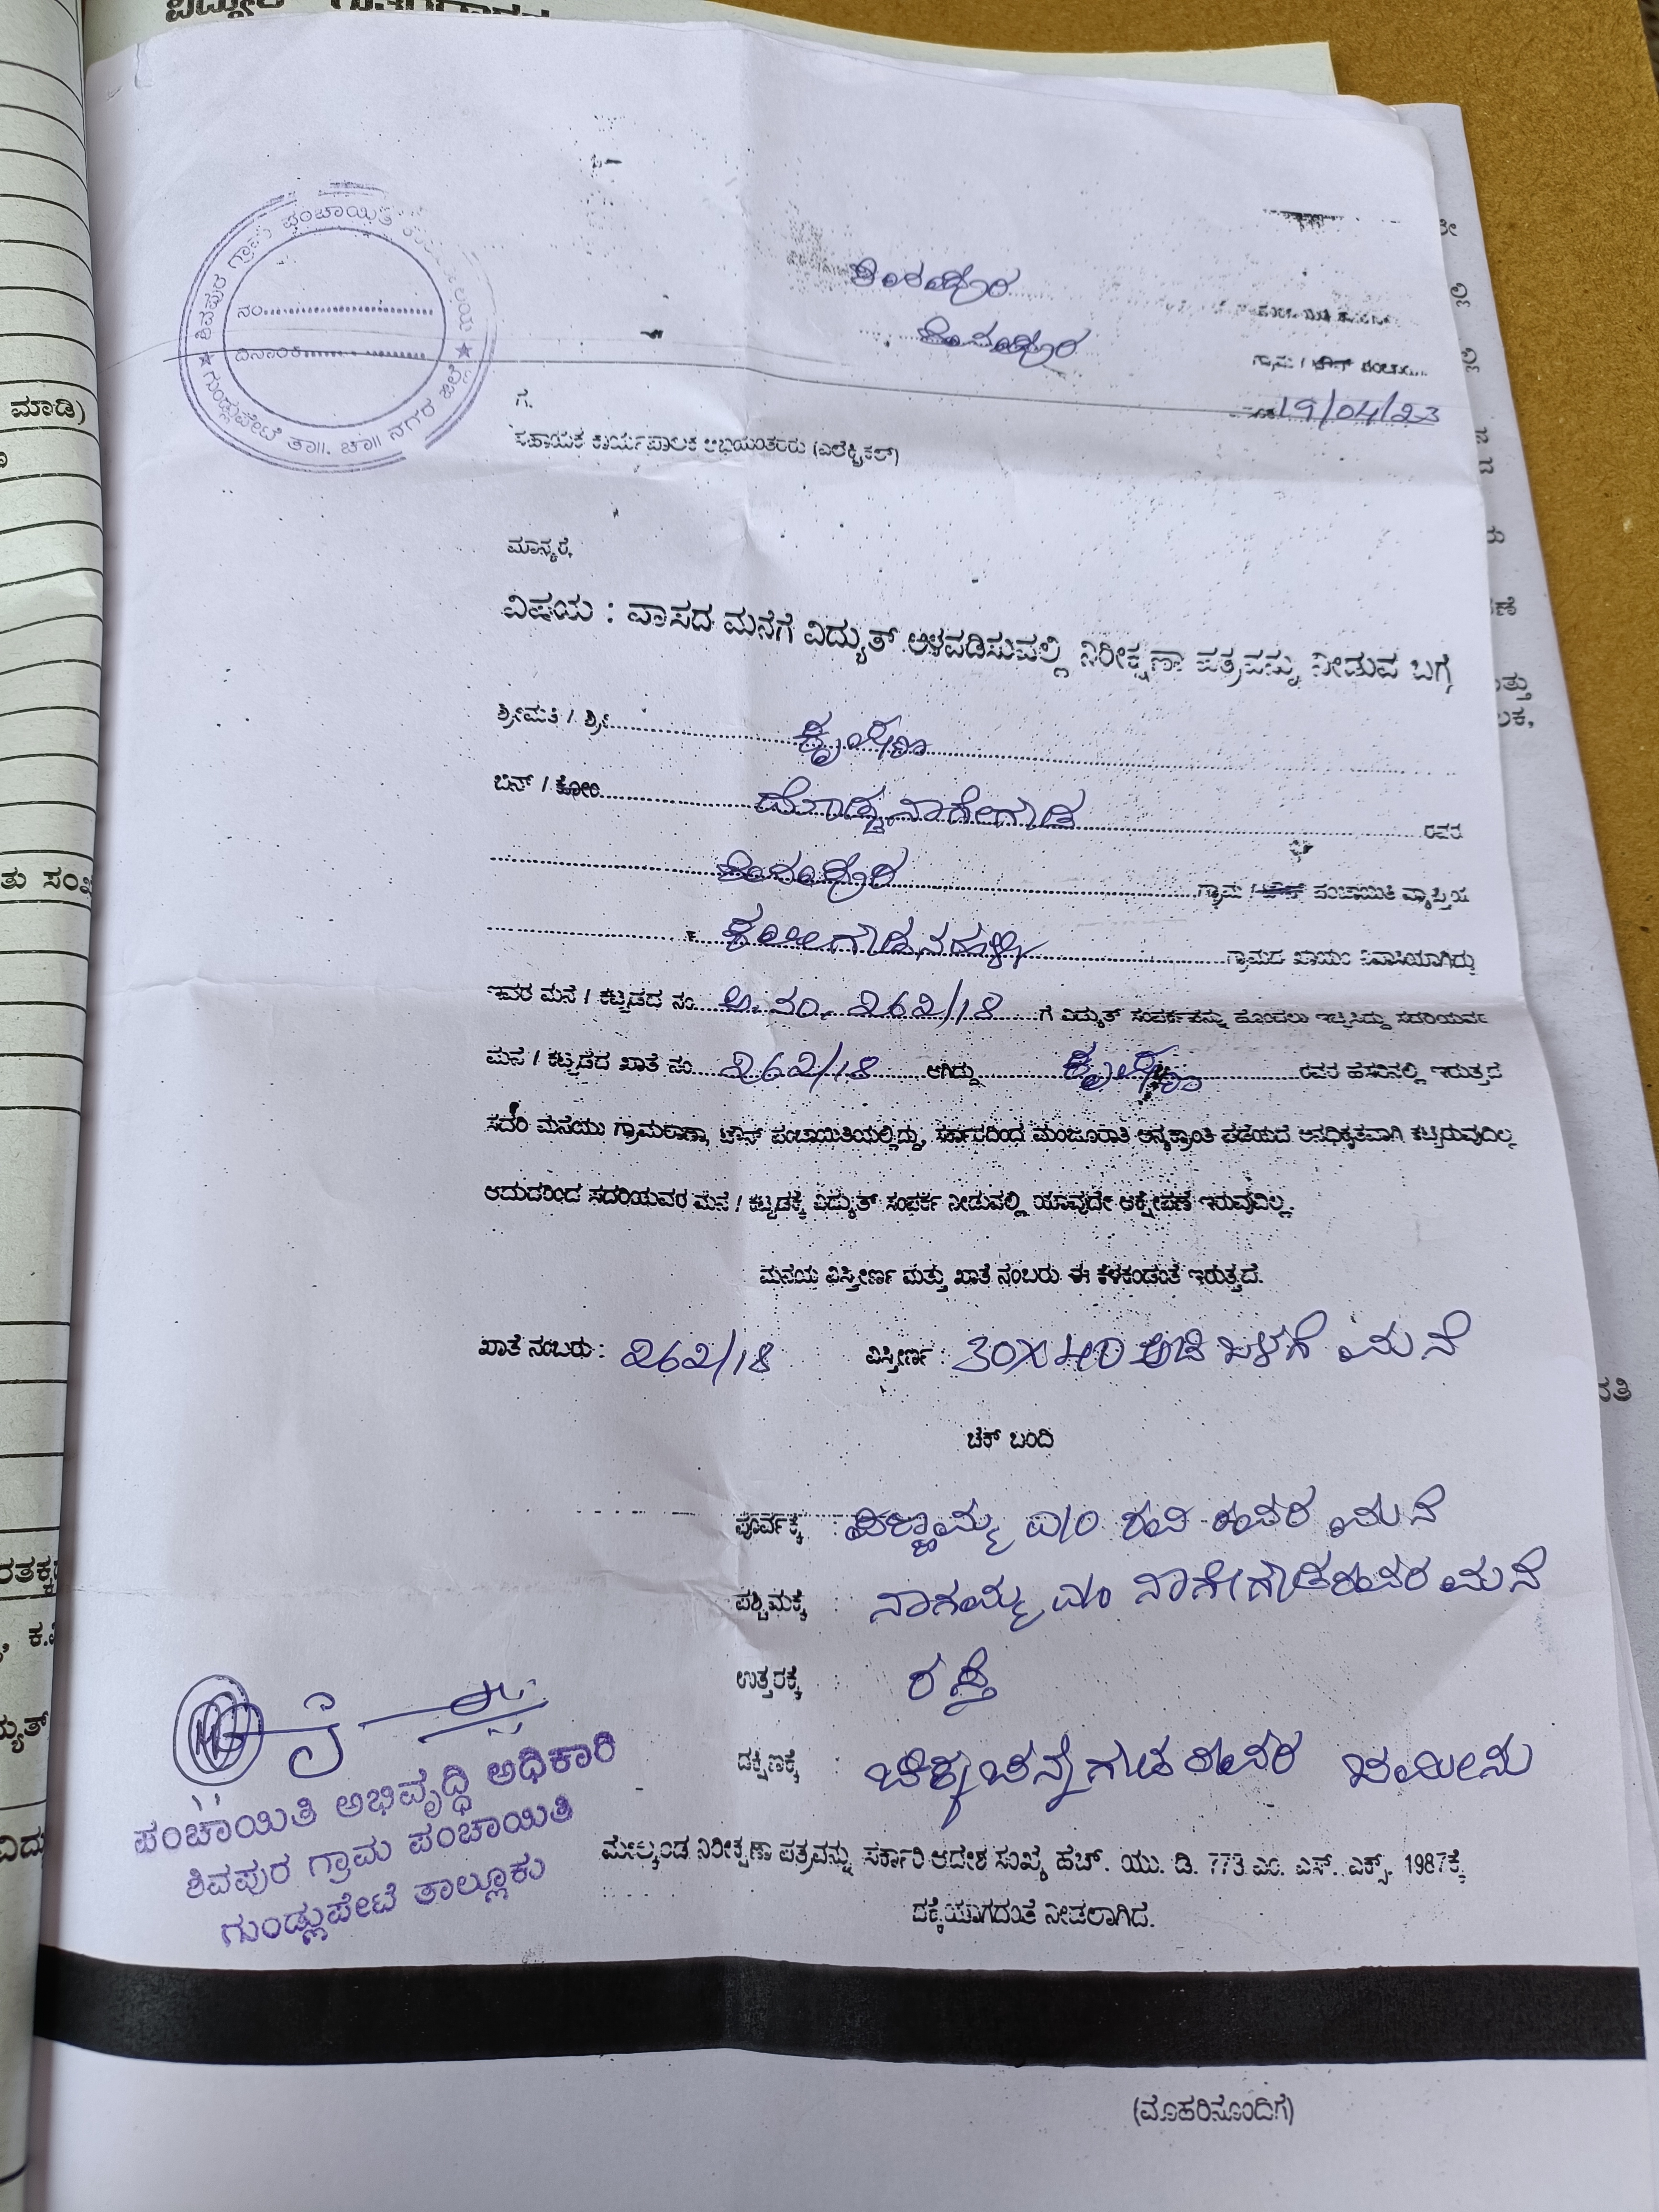 ಶಿವಪುರ
ಶಿವಪುರ
ಗ್ರಾಮ / ಟೌನ್
19/04/23
★ ಶಿವಪುರ ಗ್ರಾಮ ಪಂಚಾಯಿತಿ
★ ಗುಂಡ್ಲುಪೇಟೆ ತಾ॥. ಚಾ॥ ನಗರ ಜಿಲ್ಲೆ
ನಂ
ದಿನಾಂಕ
ಗೆ.
ಸಹಾಯಕ ಕಾರ್ಯಪಾಲಕ ಅಭಿಯಂತರರು (ಎಲೆಕ್ಟ್ರಿಕಲ್)
ಮಾನ್ಯರೆ,
ವಿಷಯ : ವಾಸದ ಮನೆಗೆ ವಿದ್ಯುತ್ ಅಳವಡಿಸುವಲ್ಲಿ ನಿರೀಕ್ಷಣಾ ಪತ್ರವನ್ನು ನೀಡುವ ಬಗ್ಗೆ
ಶ್ರೀಮತಿ / ಶ್ರೀ ಕೃಷ್ಣ
ಬಿನ್ / ಕೋಂ ದೊಡ್ಡನಾಗೇಗೌಡ ರವರ
ಶಿವಪುರ ಗ್ರಾಮ / ಟೌನ್ ಪಂಚಾಯಿತಿ ವ್ಯಾಪ್ತಿಯ
ಕಲೀಗೌಡನಹಳ್ಳಿ ಗ್ರಾಮದ ಖಾಯಂ ನಿವಾಸಿಯಾಗಿದ್ದು
ಇವರ ಮನೆ / ಕಟ್ಟಡದ ನಂ. ಅ.ನಂ. 262/18 ಗೆ ವಿದ್ಯುತ್ ಸಂಪರ್ಕವನ್ನು ಹೊಂದಲು ಇಚ್ಛಿಸಿದ್ದು ಸದರಿಯವರ
ಮನೆ / ಕಟ್ಟಡದ ಖಾತೆ ನಂ. 262/18 ಆಗಿದ್ದು ಕೃಷ್ಣ ರವರ ಹೆಸರಿನಲ್ಲಿ ಇರುತ್ತದೆ
ಸದರಿ ಮನೆಯು ಗ್ರಾಮಠಾಣಾ, ಟೌನ್ ಪಂಚಾಯಿತಿಯಲ್ಲಿದ್ದು, ಸರ್ಕಾರದಿಂದ ಮಂಜೂರಾತಿ ಅನ್ಯಕ್ರಾಂತಿ ಪಡೆಯದೆ ಅನಧಿಕೃತವಾಗಿ ಕಟ್ಟಿರುವುದಿಲ್ಲ
ಆದುದರಿಂದ ಸದರಿಯವರ ಮನೆ / ಕಟ್ಟಡಕ್ಕೆ ವಿದ್ಯುತ್ ಸಂಪರ್ಕ ನೀಡುವಲ್ಲಿ ಯಾವುದೇ ಆಕ್ಷೇಪಣೆ ಇರುವುದಿಲ್ಲ.
ಮನೆಯ ವಿಸ್ತೀರ್ಣ ಮತ್ತು ಖಾತೆ ನಂಬರು ಈ ಕೆಳಕಂಡಂತೆ ಇರುತ್ತದೆ.
ಖಾತೆ ನಂಬರು : 262/18 ವಿಸ್ತೀರ್ಣ : 30X40 ಅಡಿ ಒಳಗೆ ಮನೆ
ಚೆಕ್ ಬಂದಿ
ಪೂರ್ವಕ್ಕೆ : ಚಿಣ್ಣಮ್ಮ W/O ರವಿ ರವರ ಮನೆ
ಪಶ್ಚಿಮಕ್ಕೆ : ನಾಗಮ್ಮ W/O ನಾಗೇಗೌಡರವರ ಮನೆ
ಉತ್ತರಕ್ಕೆ : ರಸ್ತೆ
ದಕ್ಷಿಣಕ್ಕೆ : ಚಿಕ್ಕಚೆನ್ನೇಗೌಡ ರವರ ಜಮೀನು
ಪಂಚಾಯಿತಿ ಅಭಿವೃದ್ಧಿ ಅಧಿಕಾರಿ
ಶಿವಪುರ ಗ್ರಾಮ ಪಂಚಾಯಿತಿ
ಗುಂಡ್ಲುಪೇಟೆ ತಾಲ್ಲೂಕು
ಮೇಲ್ಕಂಡ ನಿರೀಕ್ಷಣಾ ಪತ್ರವನ್ನು ಸರ್ಕಾರಿ ಆದೇಶ ಸಂಖ್ಯೆ ಹೆಚ್. ಯು. ಡಿ. 773 ಎಂ. ಎಸ್. ಎಕ್ಸ್. 1987ಕ್ಕೆ
ದಕ್ಕೆಯಾಗದಂತೆ ನೀಡಲಾಗಿದೆ.
(ಮೊಹರಿನೊಂದಿಗೆ)